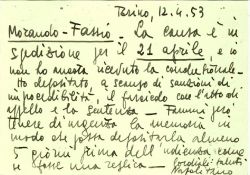 Torino, 12.4.53
Morando-Fassio - La causa è in
spedizione per il 21 aprile e io
non ho ancora ricevuto la
Ho depositato, a scanso di sanzioni di
il fascicolo con l'atto di
appello e la sentenza - Fammi però
avere di urgenza la memoria in
modo che possa depositarla almeno
5 giorni prima dell'udienza
e fare una replica - Cordiali saluti
Napolitano